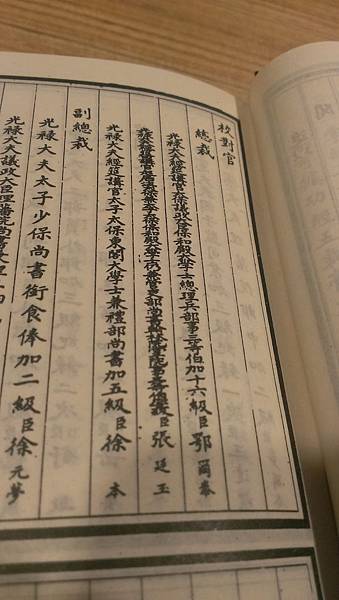 校對官
總裁
光祿大夫經筵講官太保議政大臣保和殿大學士總理兵部事三等伯加十六級臣鄂爾泰
保和殿大學士兼管吏部尚書事臣張廷玉
光祿大夫經筵講官太子太保東閣大學士兼禮部尚書加五級臣徐本
副總裁
光祿大夫太子少保尚書銜食俸加二級臣徐元夢
光祿大夫議政大臣理藩院尚書